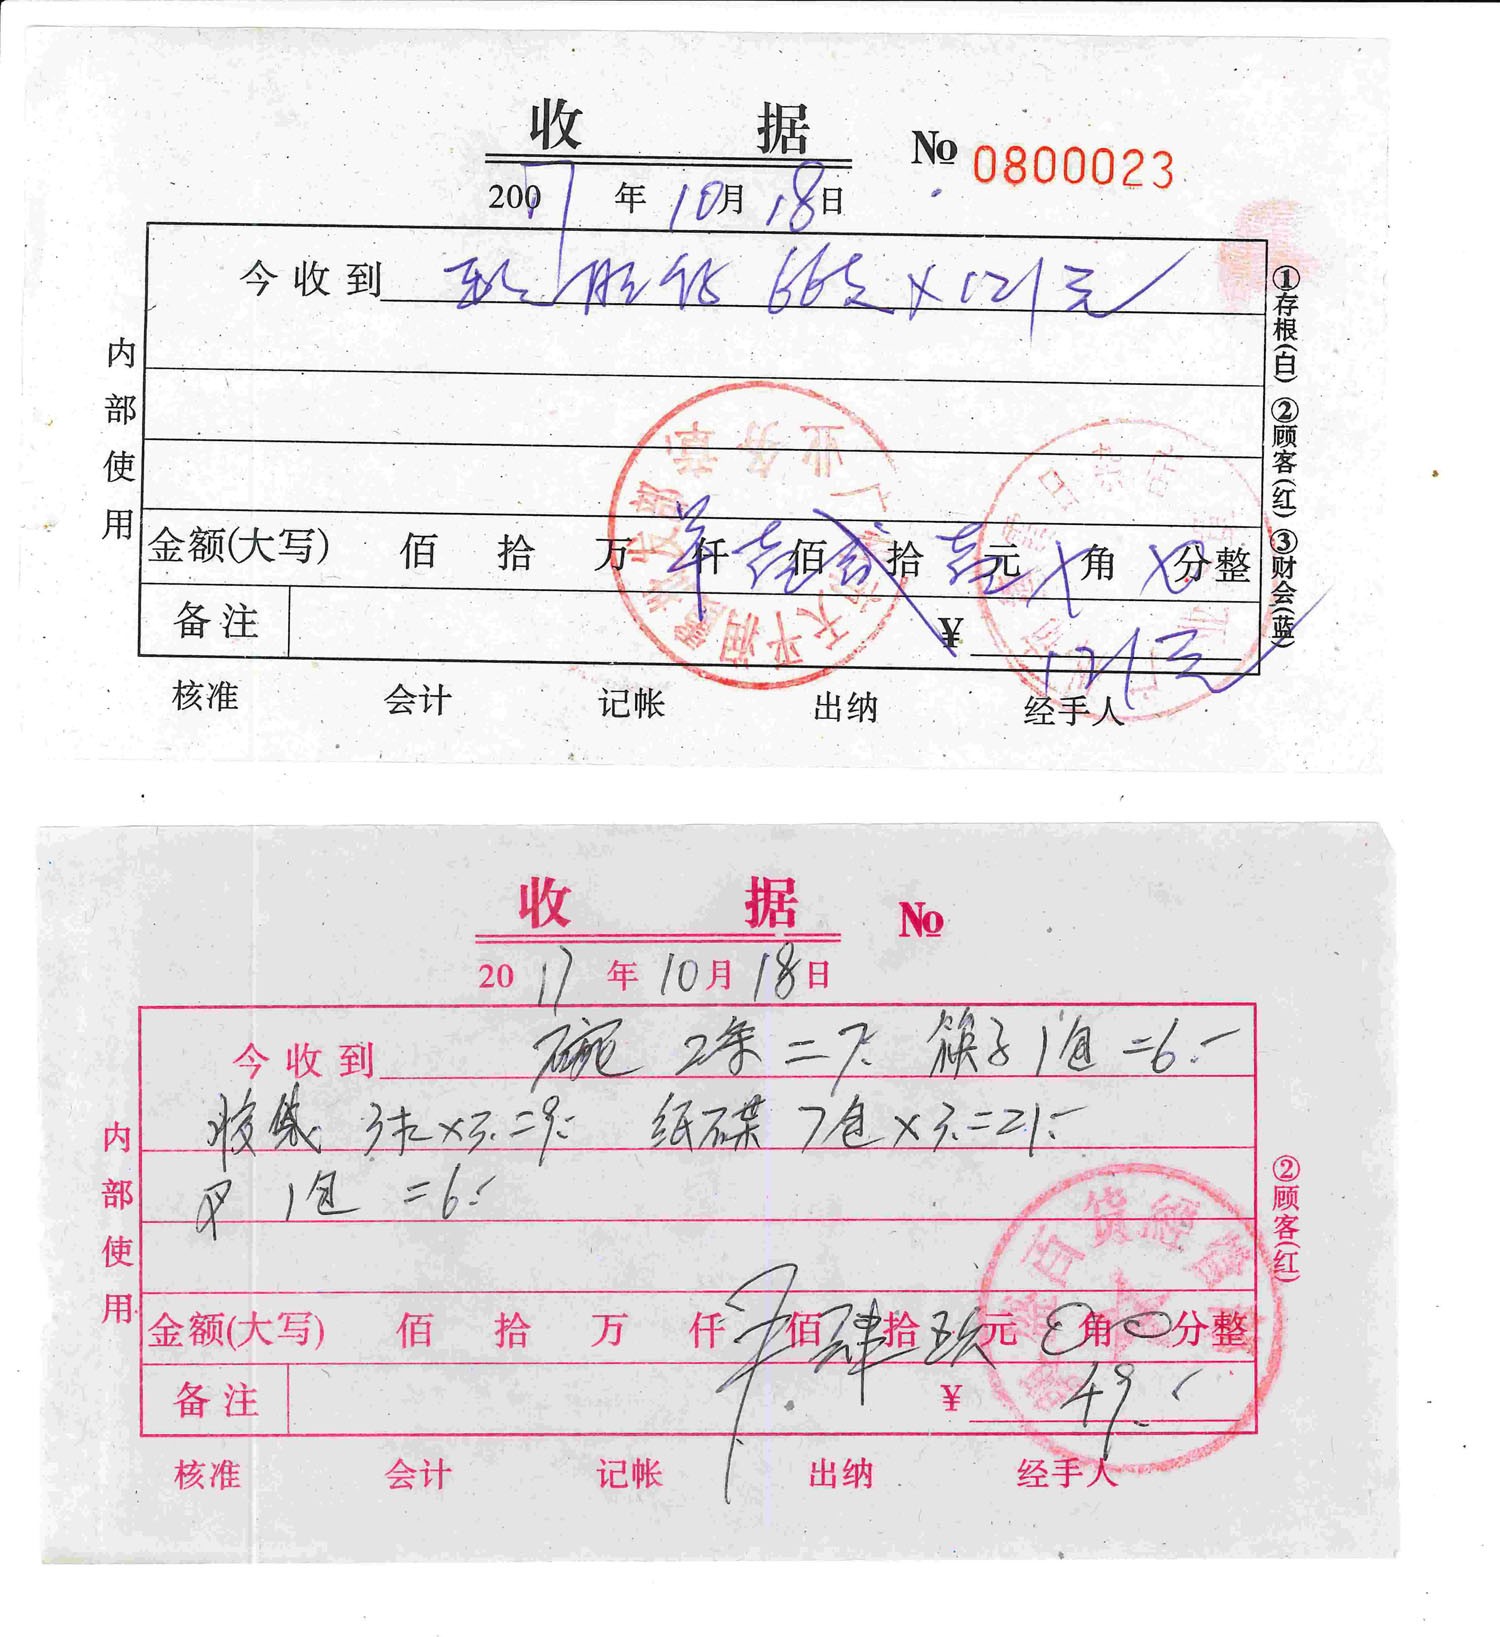 收 据 № 0800023
2007 年 10月 18日
今收到 66支 × 121元
内部使用
①存根(白) ②顾客(红) ③财会(蓝)
金额(大写) 佰 拾 万 仟 壹佰 贰拾 壹元 ×角 ×分整
备注 ¥ 121元
核准 会计 记帐 出纳 经手人
收 据 №
2017 年 10月 18日
今收到 碗 2条 =7. 筷子 1包 =6.-
胶袋 3扎×3.=9.- 纸碟 7包×3.=21.-
1包 =6.-
内部使用
②顾客(红)
金额(大写) 佰 拾 万 仟 佰 肆拾 玖元 0角 0分整
备注 ¥ 49.-
核准 会计 记帐 出纳 经手人
百货经营